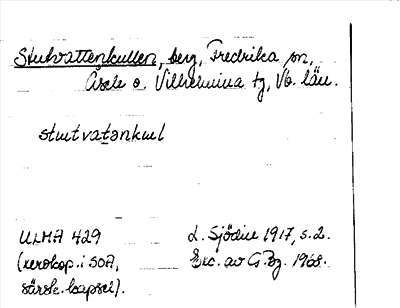 Stutvattenkullen, berg, Fredrika sn,
Åsele o. Vilhelmina tg, Vb. län.
stutvatənkul
ULMA 429
(xerokop. i SOA,
särsk. kapsel).
L. Sjödin 1917, s. 2.
Exc. av G. Bg. 1968.